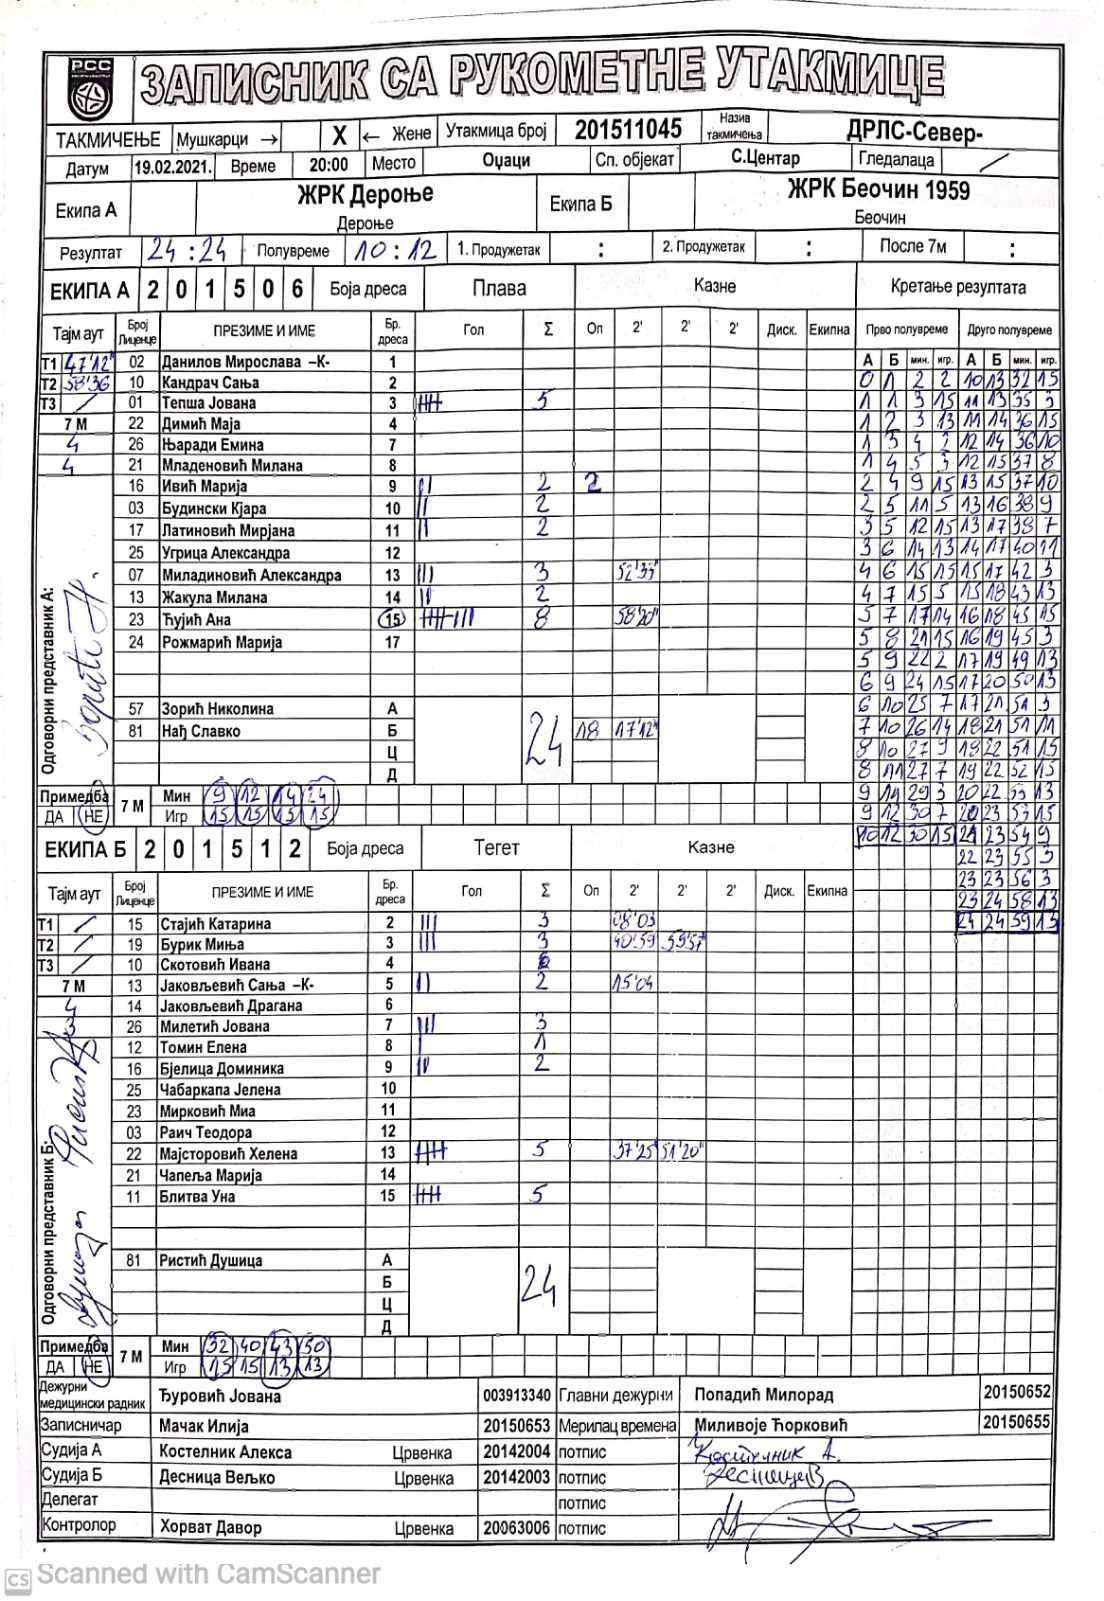 РСС
ЗАПИСНИК СА РУКОМЕТНЕ УТАКМИЦЕ
ТАКМИЧЕЊЕ Мушкарци → X ← Жене Утакмица број 201511045 Назив такмичења ДРЛС-Север-
Датум 19.02.2021. Време 20:00 Место Оџаци Сп. објекат С.Центар Гледалаца /
Екипа А ЖРК Дероње Екипа Б ЖРК Беочин 1959
Дероње Беочин
Резултат 24 : 24 Полувреме 10 : 12 1. Продужетак : 2. Продужетак : После 7м :
ЕКИПА А 2 0 1 5 0 6 Боја дреса Плава Казне Кретање резултата
Тајм аут Број Лиценце ПРЕЗИМЕ И ИМЕ Бр. дреса Гол Σ Оп 2' 2' 2' Диск. Екипна Прво полувреме Друго полувреме
Т1 47'12" 02 Данилов Мирослава –К- 1 А Б мин. игр. А Б мин. игр.
Т2 58'36 10 Кандрач Сања 2 0 1 2 2 10 13 32 15
Т3 / 01 Тепша Јована 3 5 1 1 3 15 11 13 35 3
7 М 22 Димић Маја 4 1 2 3 13 11 14 36 15
4 26 Њаради Емина 7 1 3 4 2 12 14 36 10
4 21 Младеновић Милана 8 1 4 5 3 12 15 37 8
16 Ивић Марија 9 2 2 2 4 9 15 13 15 37 10
03 Будински Кјара 10 2 2 5 11 5 13 16 38 9
17 Латиновић Мирјана 11 2 3 5 12 15 13 17 38 7
25 Угрица Александра 12 3 6 14 13 14 17 40 11
07 Миладиновић Александра 13 3 52'33" 4 6 15 15 15 17 42 3
13 Жакула Милана 14 2 4 7 15 5 15 18 43 13
23 Ћујић Ана 15 8 58'20" 5 7 17 14 16 18 45 15
24 Рожмарић Марија 17 5 8 21 15 16 19 45 3
5 9 22 2 17 19 49 13
6 9 24 15 17 20 50 13
57 Зорић Николина А 6 10 25 7 17 21 51 3
81 Нађ Славко Б 24 18 17'12" 7 10 26 14 18 21 51 11
Ц 8 10 27 9 18 22 51 15
Д 8 11 27 7 19 22 52 15
Одговорни представник А:
Примедба 7 М Мин 9 12 14 24 9 11 29 3 20 22 53 13
ДА НЕ Игр 15 15 15 15 9 12 30 7 20 23 53 15
ЕКИПА Б 2 0 1 5 1 2 Боја дреса Тегет Казне 10 12 30 15 21 23 54 9
22 23 55 3
Тајм аут Број Лиценце ПРЕЗИМЕ И ИМЕ Бр. дреса Гол Σ Оп 2' 2' 2' Диск. Екипна 23 23 56 3
23 24 58 13
Т1 / 15 Стајић Катарина 2 3 08'03 24 24 59 13
Т2 / 19 Бурик Миња 3 3 40'39 59'57"
Т3 / 10 Скотовић Ивана 4
7 М 13 Јаковљевић Сања –К- 5 2 15'04
4 14 Јаковљевић Драгана 6
26 Милетић Јована 7 3
12 Томин Елена 8 1
16 Бјелица Доминика 9 2
25 Чабаркапа Јелена 10
23 Мирковић Миа 11
03 Раич Теодора 12
22 Мајсторовић Хелена 13 5 37'25" 51'20"
21 Чапеља Марија 14
11 Блитва Уна 15 5
81 Ристић Душица А
Б 24
Ц
Д
Одговорни представник Б:
Примедба 7 М Мин 32 40 43 50
ДА НЕ Игр 15 15 13 13
Дежурни медицински радник Ђуровић Јована 003913340 Главни дежурни Попадић Милорад 20150652
Записничар Мачак Илија 20150653 Мерилац времена Миливоје Ћорковић 20150655
Судија А Костелник Алекса Црвенка 20142004 потпис Костелник А.
Судија Б Десница Вељко Црвенка 20142003 потпис Десница В
Делегат потпис
Контролор Хорват Давор Црвенка 20063006 потпис
CS Scanned with CamScanner